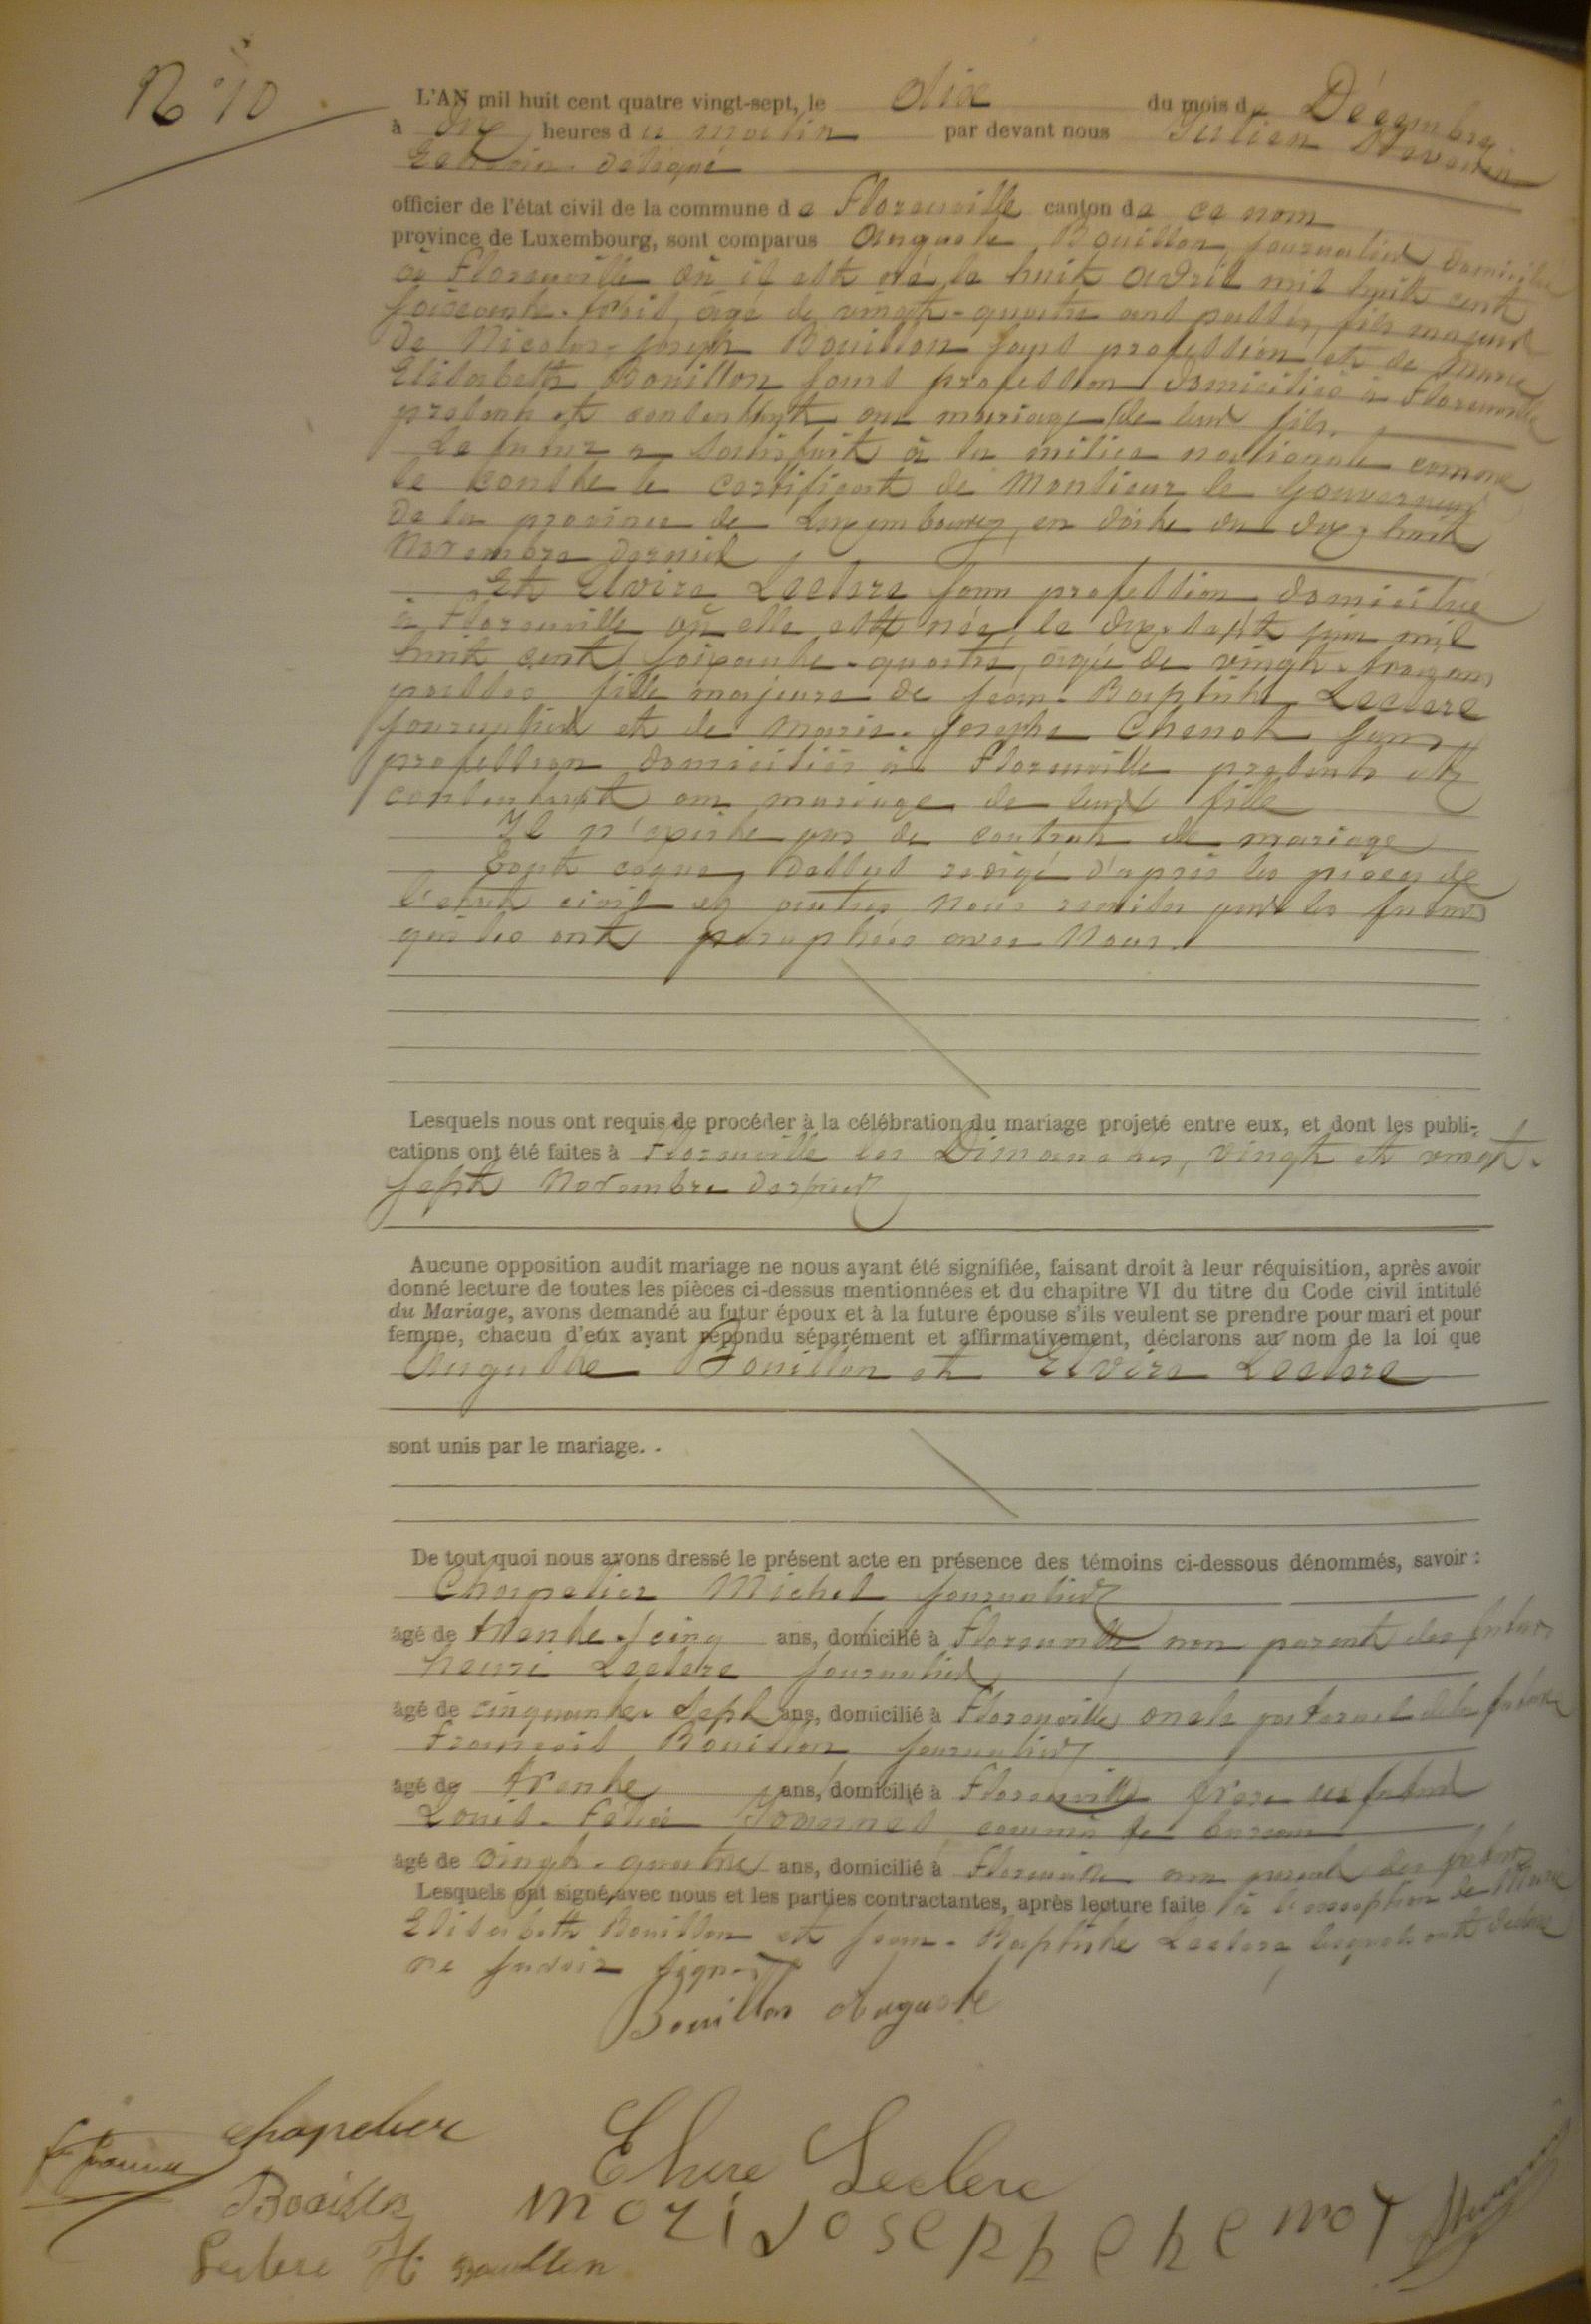 N° 10
L'AN mil huit cent quatre vingt-sept, le dix du mois de Décembre
à onze heures du matin par devant nous Julien
Echevin délégué
officier de l'état civil de la commune de Florenville canton de ce nom
province de Luxembourg, sont comparus Auguste Bouillon journalier domicilié
à Florenville où il est né le huit avril mil huit cent
soixante-trois, âgé de vingt-quatre ans passés, fils majeur
de Nicolas-Joseph Bouillon sans profession et de Marie
Elisabeth Bouillon sans profession domiciliés à Florenville
présents et consentant au mariage de leur fils.
Le futur a satisfait à la milice nationale comme
le constate le certificat de Monsieur le Gouverneur
de la province de Luxembourg en date du dix-huit
Novembre dernier
Et Elvire Leclere sans profession domiciliée
à Florenville où elle est née le dix-sept juin mil
huit cent soixante-quatre, âgée de vingt-trois ans
passés fille majeure de Jean-Baptiste Leclere
journalier et de Marie-Josephe Chenot sans
profession domiciliés à Florenville présents et
consentant au mariage de leur fille
Il n'existe pas de contrat de mariage
Tout ce que dessus rédigé d'après les pièces de
l'état civil et autres nous remises par les futurs
qui les ont paraphées avec nous.
Lesquels nous ont requis de procéder à la célébration du mariage projeté entre eux, et dont les publi-
cations ont été faites à Florenville les Dimanches, vingt et vingt-
sept Novembre dernier
Aucune opposition audit mariage ne nous ayant été signifiée, faisant droit à leur réquisition, après avoir
donné lecture de toutes les pièces ci-dessus mentionnées et du chapitre VI du titre du Code civil intitulé
du Mariage, avons demandé au futur époux et à la future épouse s'ils veulent se prendre pour mari et pour
femme, chacun d'eux ayant répondu séparément et affirmativement, déclarons au nom de la loi que
Auguste Bouillon et Elvire Leclere
sont unis par le mariage.
De tout quoi nous avons dressé le présent acte en présence des témoins ci-dessous dénommés, savoir :
Chapelier Michel journalier
âgé de trente-cinq ans, domicilié à Florenville non parent des futurs
Henri Leclere journalier
âgé de cinquante-sept ans, domicilié à Florenville oncle paternel de la future
François Bouillon journalier
âgé de trente ans, domicilié à Florenville frère du futur
Louis-Félix commis de bureau
âgé de vingt-quatre ans, domicilié à Florenville non parent des futurs
Lesquels ont signé avec nous et les parties contractantes, après lecture faite à l'exception de Marie
Elisabeth Bouillon et Jean-Baptiste Leclere lesquels ont déclaré
ne savoir signer
Bouillon Auguste
chapelier
Elvire Leclere
Bouillon
Leclere H Bouillon